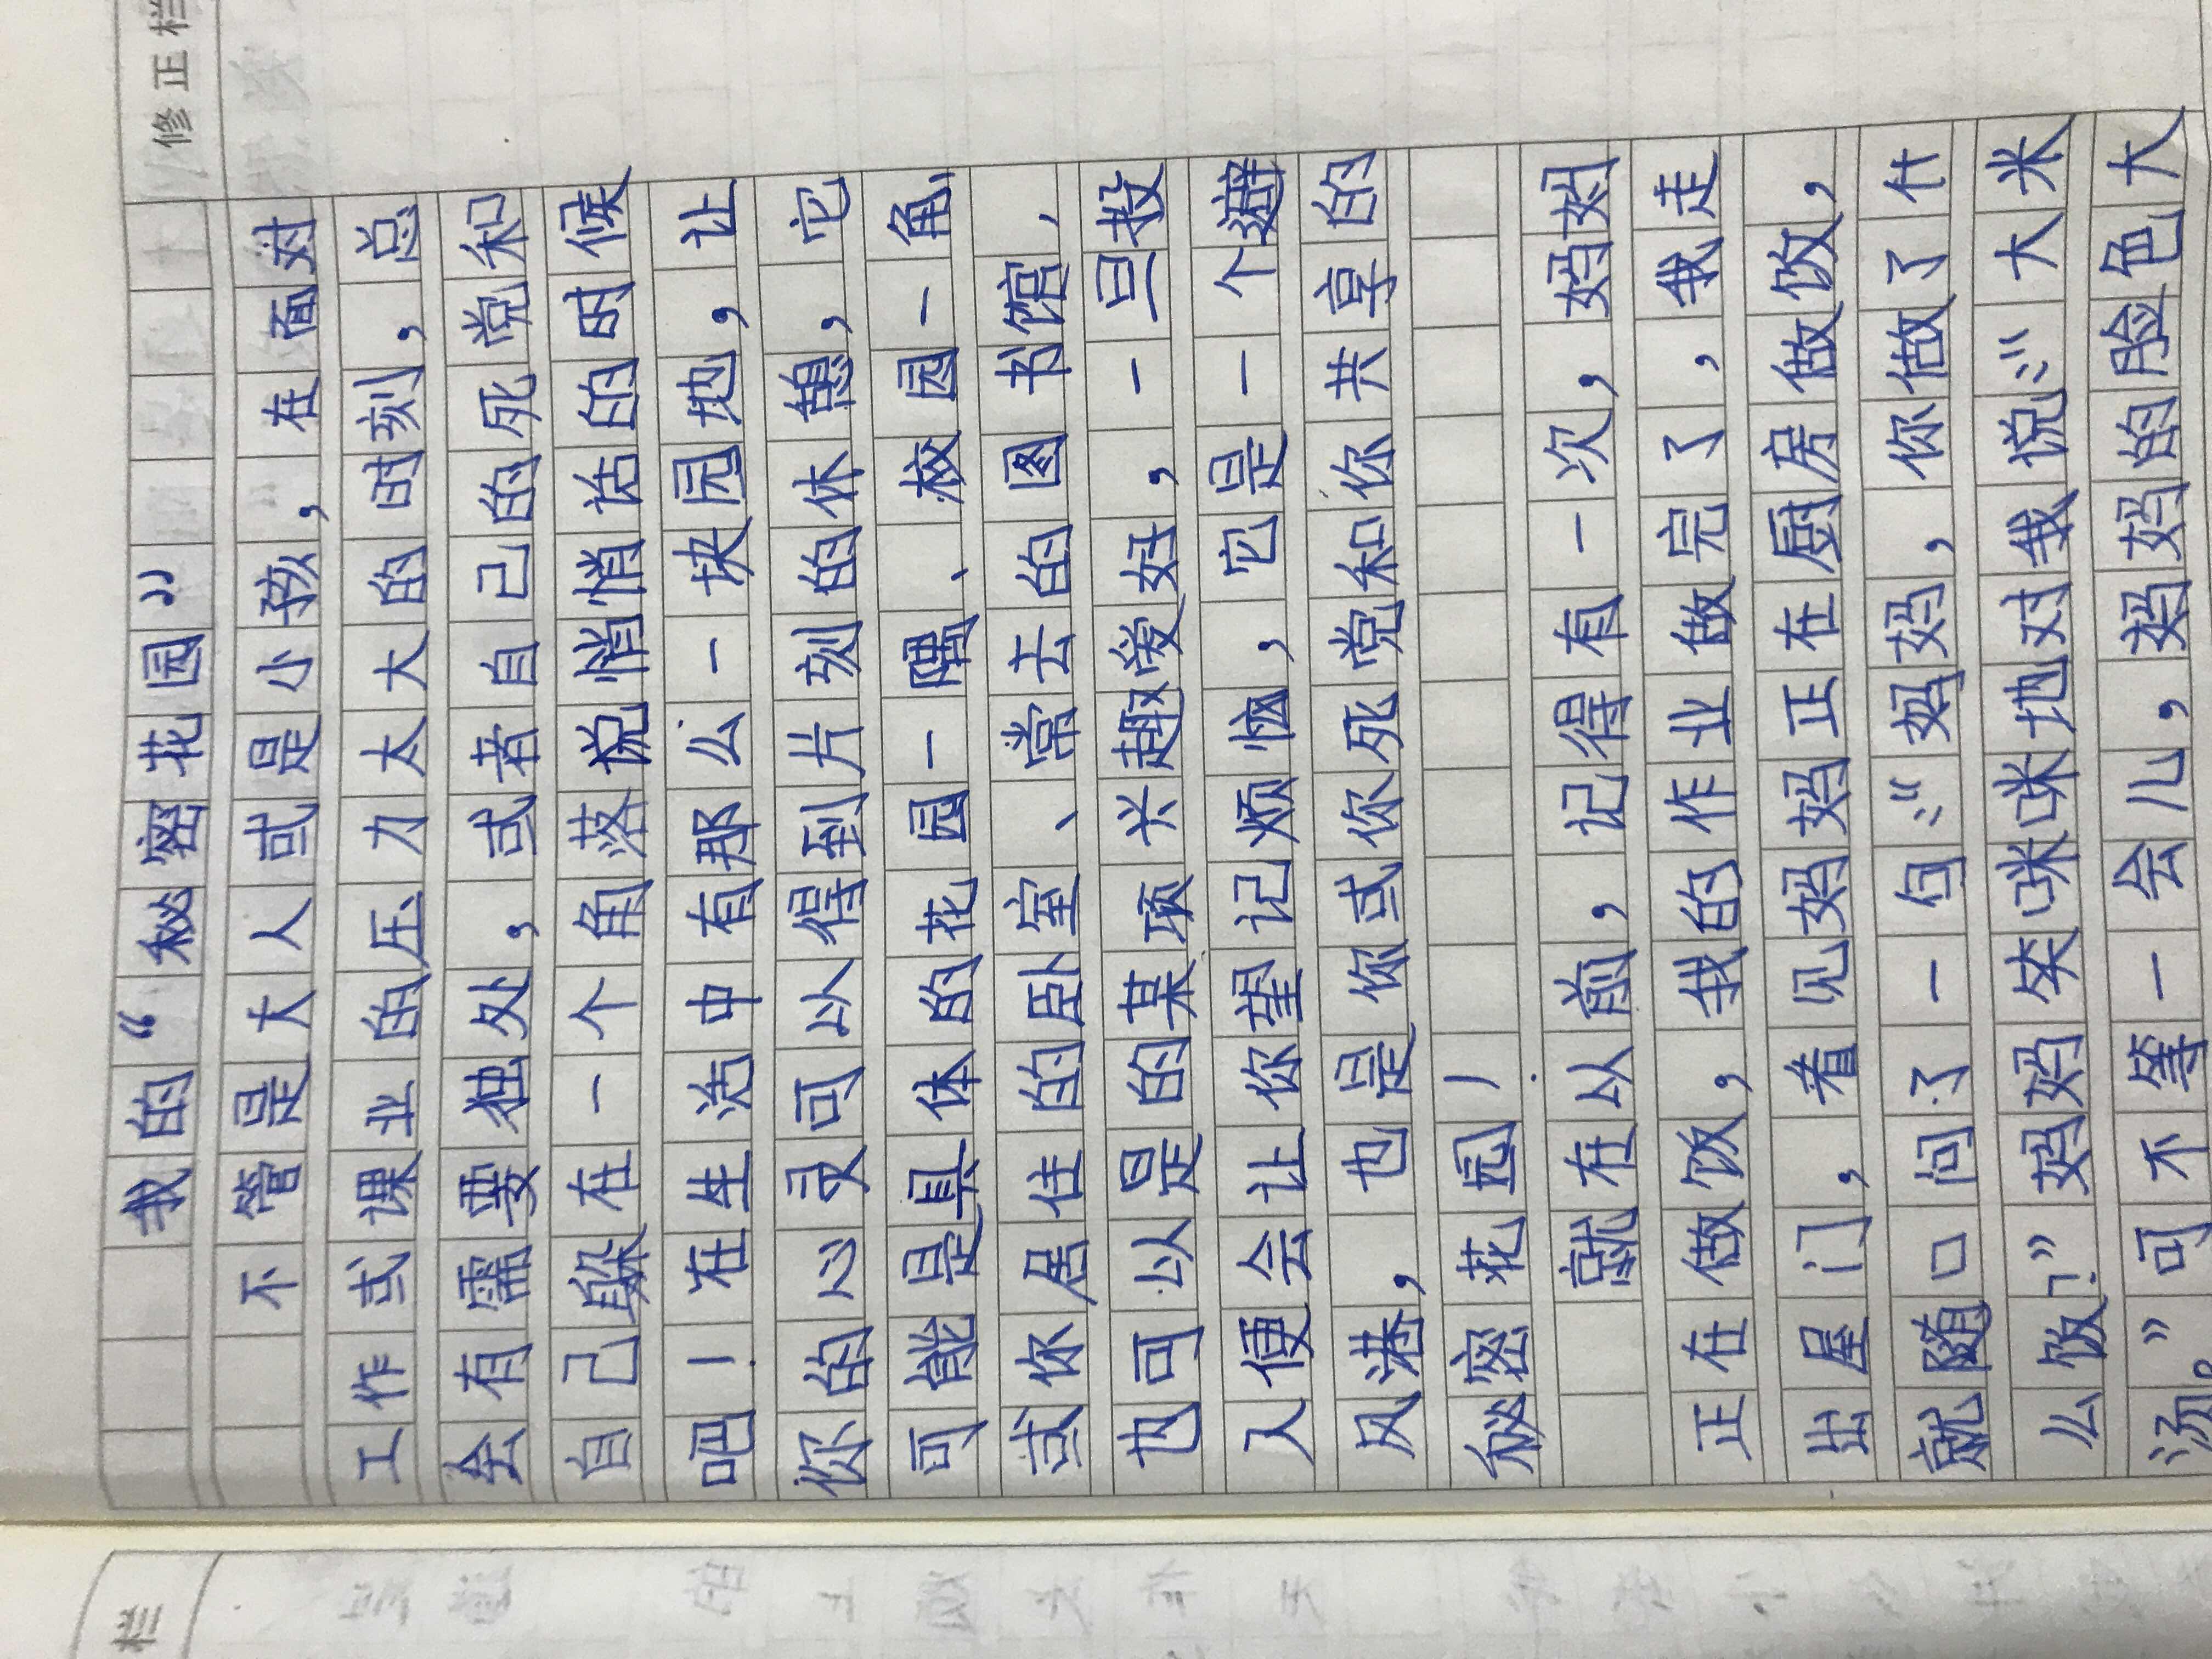 修正栏
我的“秘密花园”
不管是大人或是小孩，在面对
工作或课业的压力太大的时刻，总
会有需要独处，或者自己的死党和
自己躲在一个角落说悄悄话的时候
吧！在生活中有那么一块园地，让
你的心灵可以得到片刻的休憩，它
可能是具体的花园一隅、校园一角、
或你居住的卧室、常去的图书馆，
也可以是的某项兴趣爱好，一旦投
入便会让你望记烦恼，它是一个避
风港，也是你或你死党和你共享的
秘密花园！
就在以前，记得有一次，妈妈
正在做饭，我的作业做完了，我走
出屋门，看见妈妈正在厨房做饭，
就随口问了一句：“妈妈，你做了什
么饭？”妈妈笑咪咪地对我说：“大米
汤。”可不等一会儿，妈妈的脸色大
栏